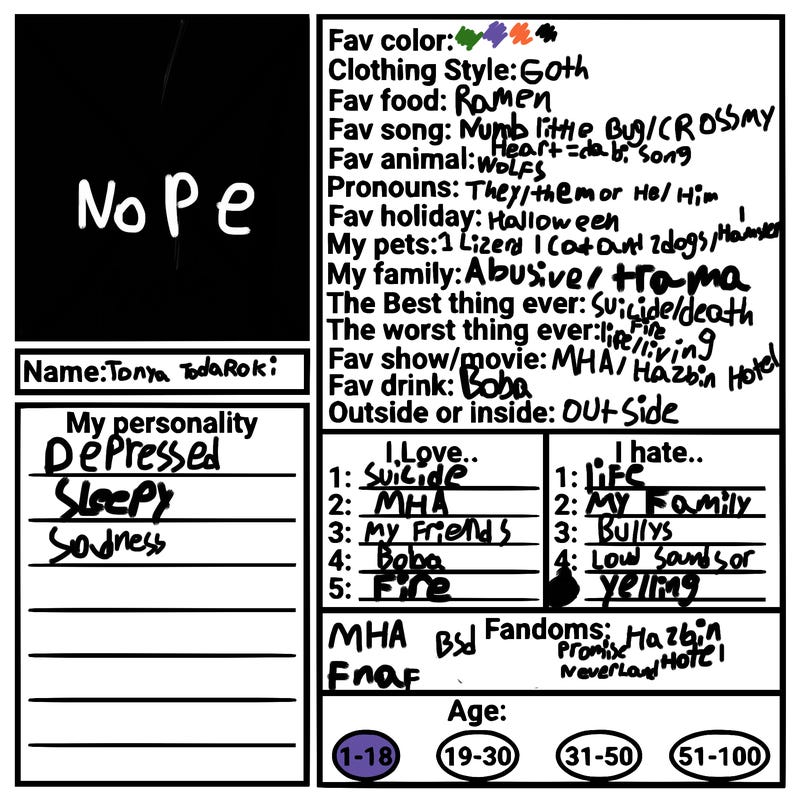 NoPe
Name:Tonya TodaRoki
My personality
Depressed
Sleepy
Sadness
Fav color:
Clothing Style:Goth
Fav food: Ramen
Fav song: Numb little Bug/CROSS my
Heart=dabi song
Fav animal:WOLFS
Pronouns: They/them or He/Him
Fav holiday: Halloween
My pets:1 Lizerd 1 Cat and 2dogs/1 Hamster
My family:Abusive/trama
The Best thing ever: Suicide/death
The worst thing ever:life/living
Fire
Fav show/movie: MHA/Hazbin Hotel
Fav drink: Boba
Outside or inside: Outside
I Love..
1: Suicide
2: MHA
3: My Friends
4: Boba
5: Fire
I hate..
1: life
2: My Family
3: Bullys
4: Loud Sounds or
yelling
Fandoms:
MHA
Bsd
Promise
Neverland
Hazbin
Hotel
Fnaf
Age:
1-18
19-30
31-50
51-100